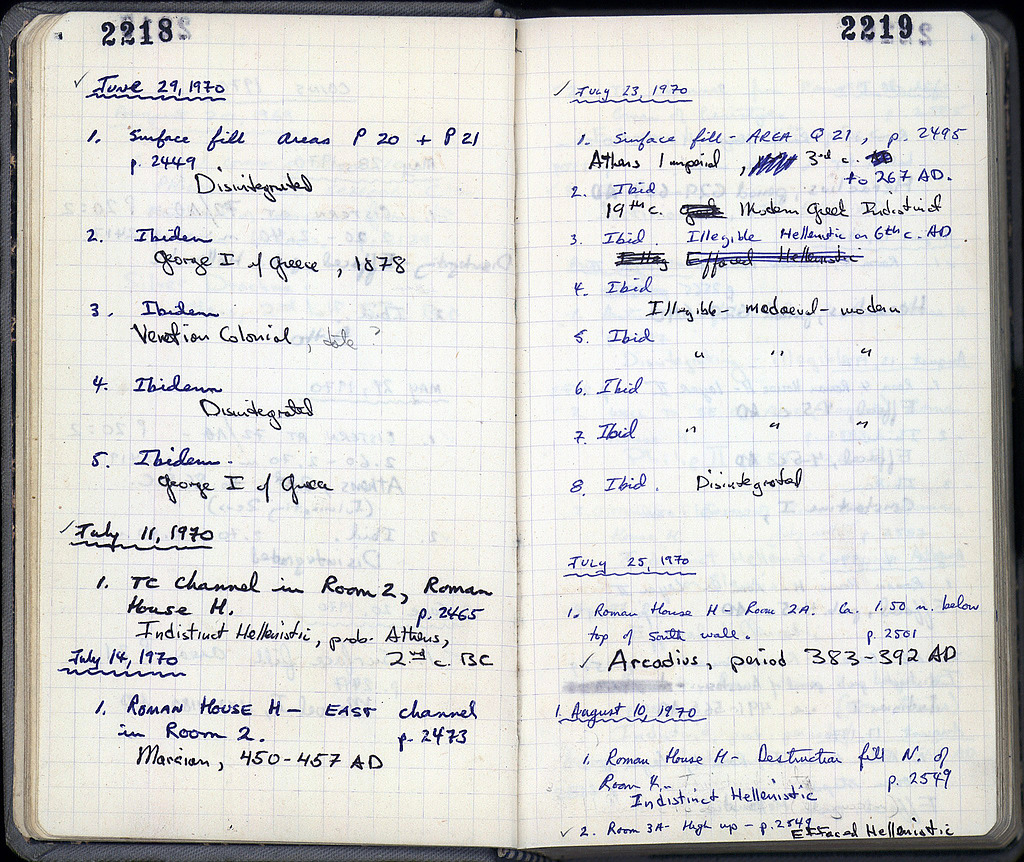 2218
✓ June 29, 1970
1. Surface fill areas P 20 + P 21
p. 2449
Disintegrated
2. Ibidem
George I of Greece, 1878
3. Ibidem
Venetian Colonial, date ?
4. Ibidem
Disintegrated
5. Ibidem.
George I of Greece
✓ July 11, 1970
1. TC Channel in Room 2, Roman
House H. p. 2465
Indistinct Hellenistic, prob. Athens,
2nd c. BC
July 14, 1970
1. ROMAN HOUSE H - EAST channel
in Room 2. p. 2473
Marcian, 450-457 AD
2219
✓ July 23, 1970
1. Surface fill - AREA Q 21, p. 2495
Athens Imperial, 3rd c.
to 267 AD.
2. Ibid
19th c. Modern Greek Indistinct
3. Ibid. Illegible Hellenistic or 6th c. AD
Effaced Hellenistic
4. Ibid
Illegible - medaeval - modern
5. Ibid
" " "
6. Ibid
7. Ibid " " "
8. Ibid. Disintegrated
July 25, 1970
1. Roman House H - Room 2A. Ca. 1.50 m. below
top of south wall. p. 2501
✓ Arcadius, period 383-392 AD
1. August 10, 1970
1. Roman House H - Destruction fill N. of
Room p. 2549
Indistinct Hellenistic
✓ 2. Room 3A - High up - p. 2549 Effaced Hellenistic